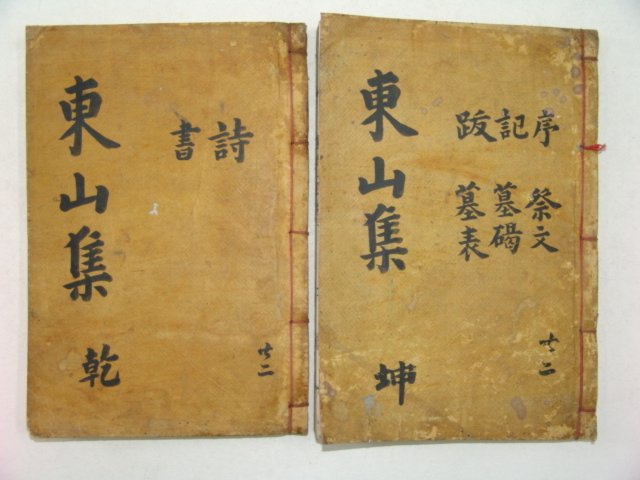 東山集 乾
詩
書
共二
東山集 坤
序
記
跋
祭文
墓碣
墓表
共二